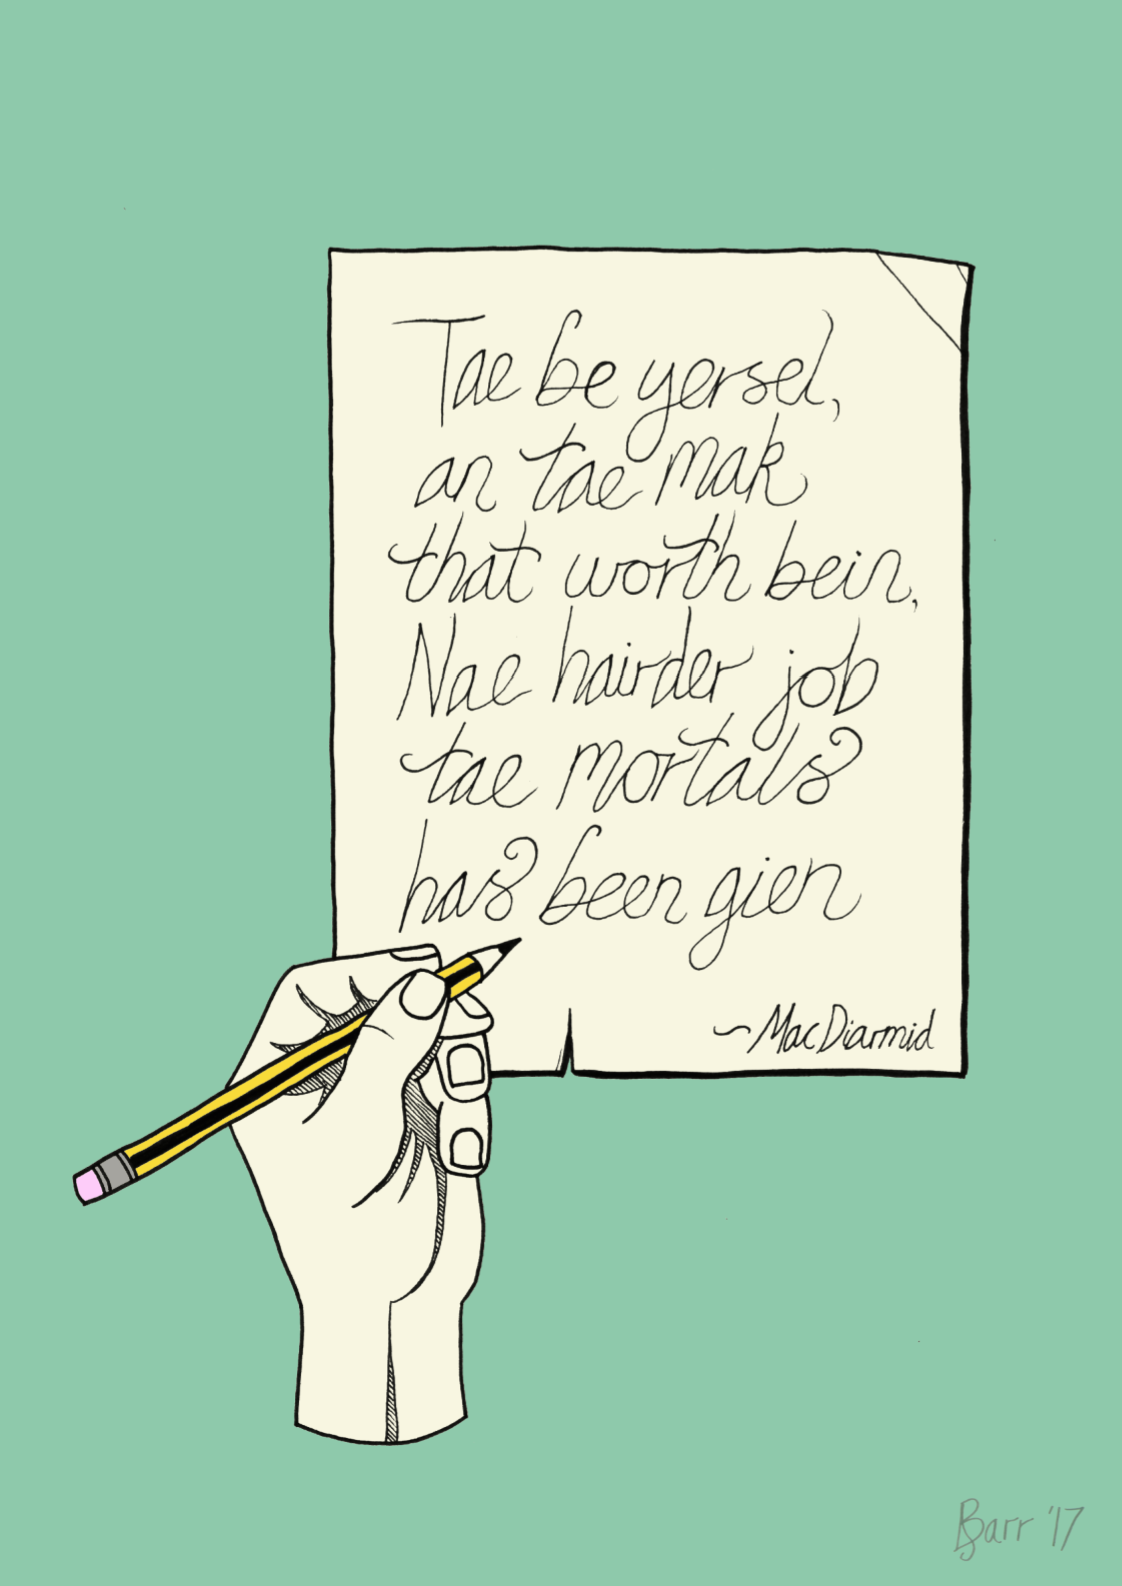 Tae be yersel,
an tae mak
that worth bein,
Nae hairder job
tae mortals
has been gien
~ MacDiarmid
BBarr '17